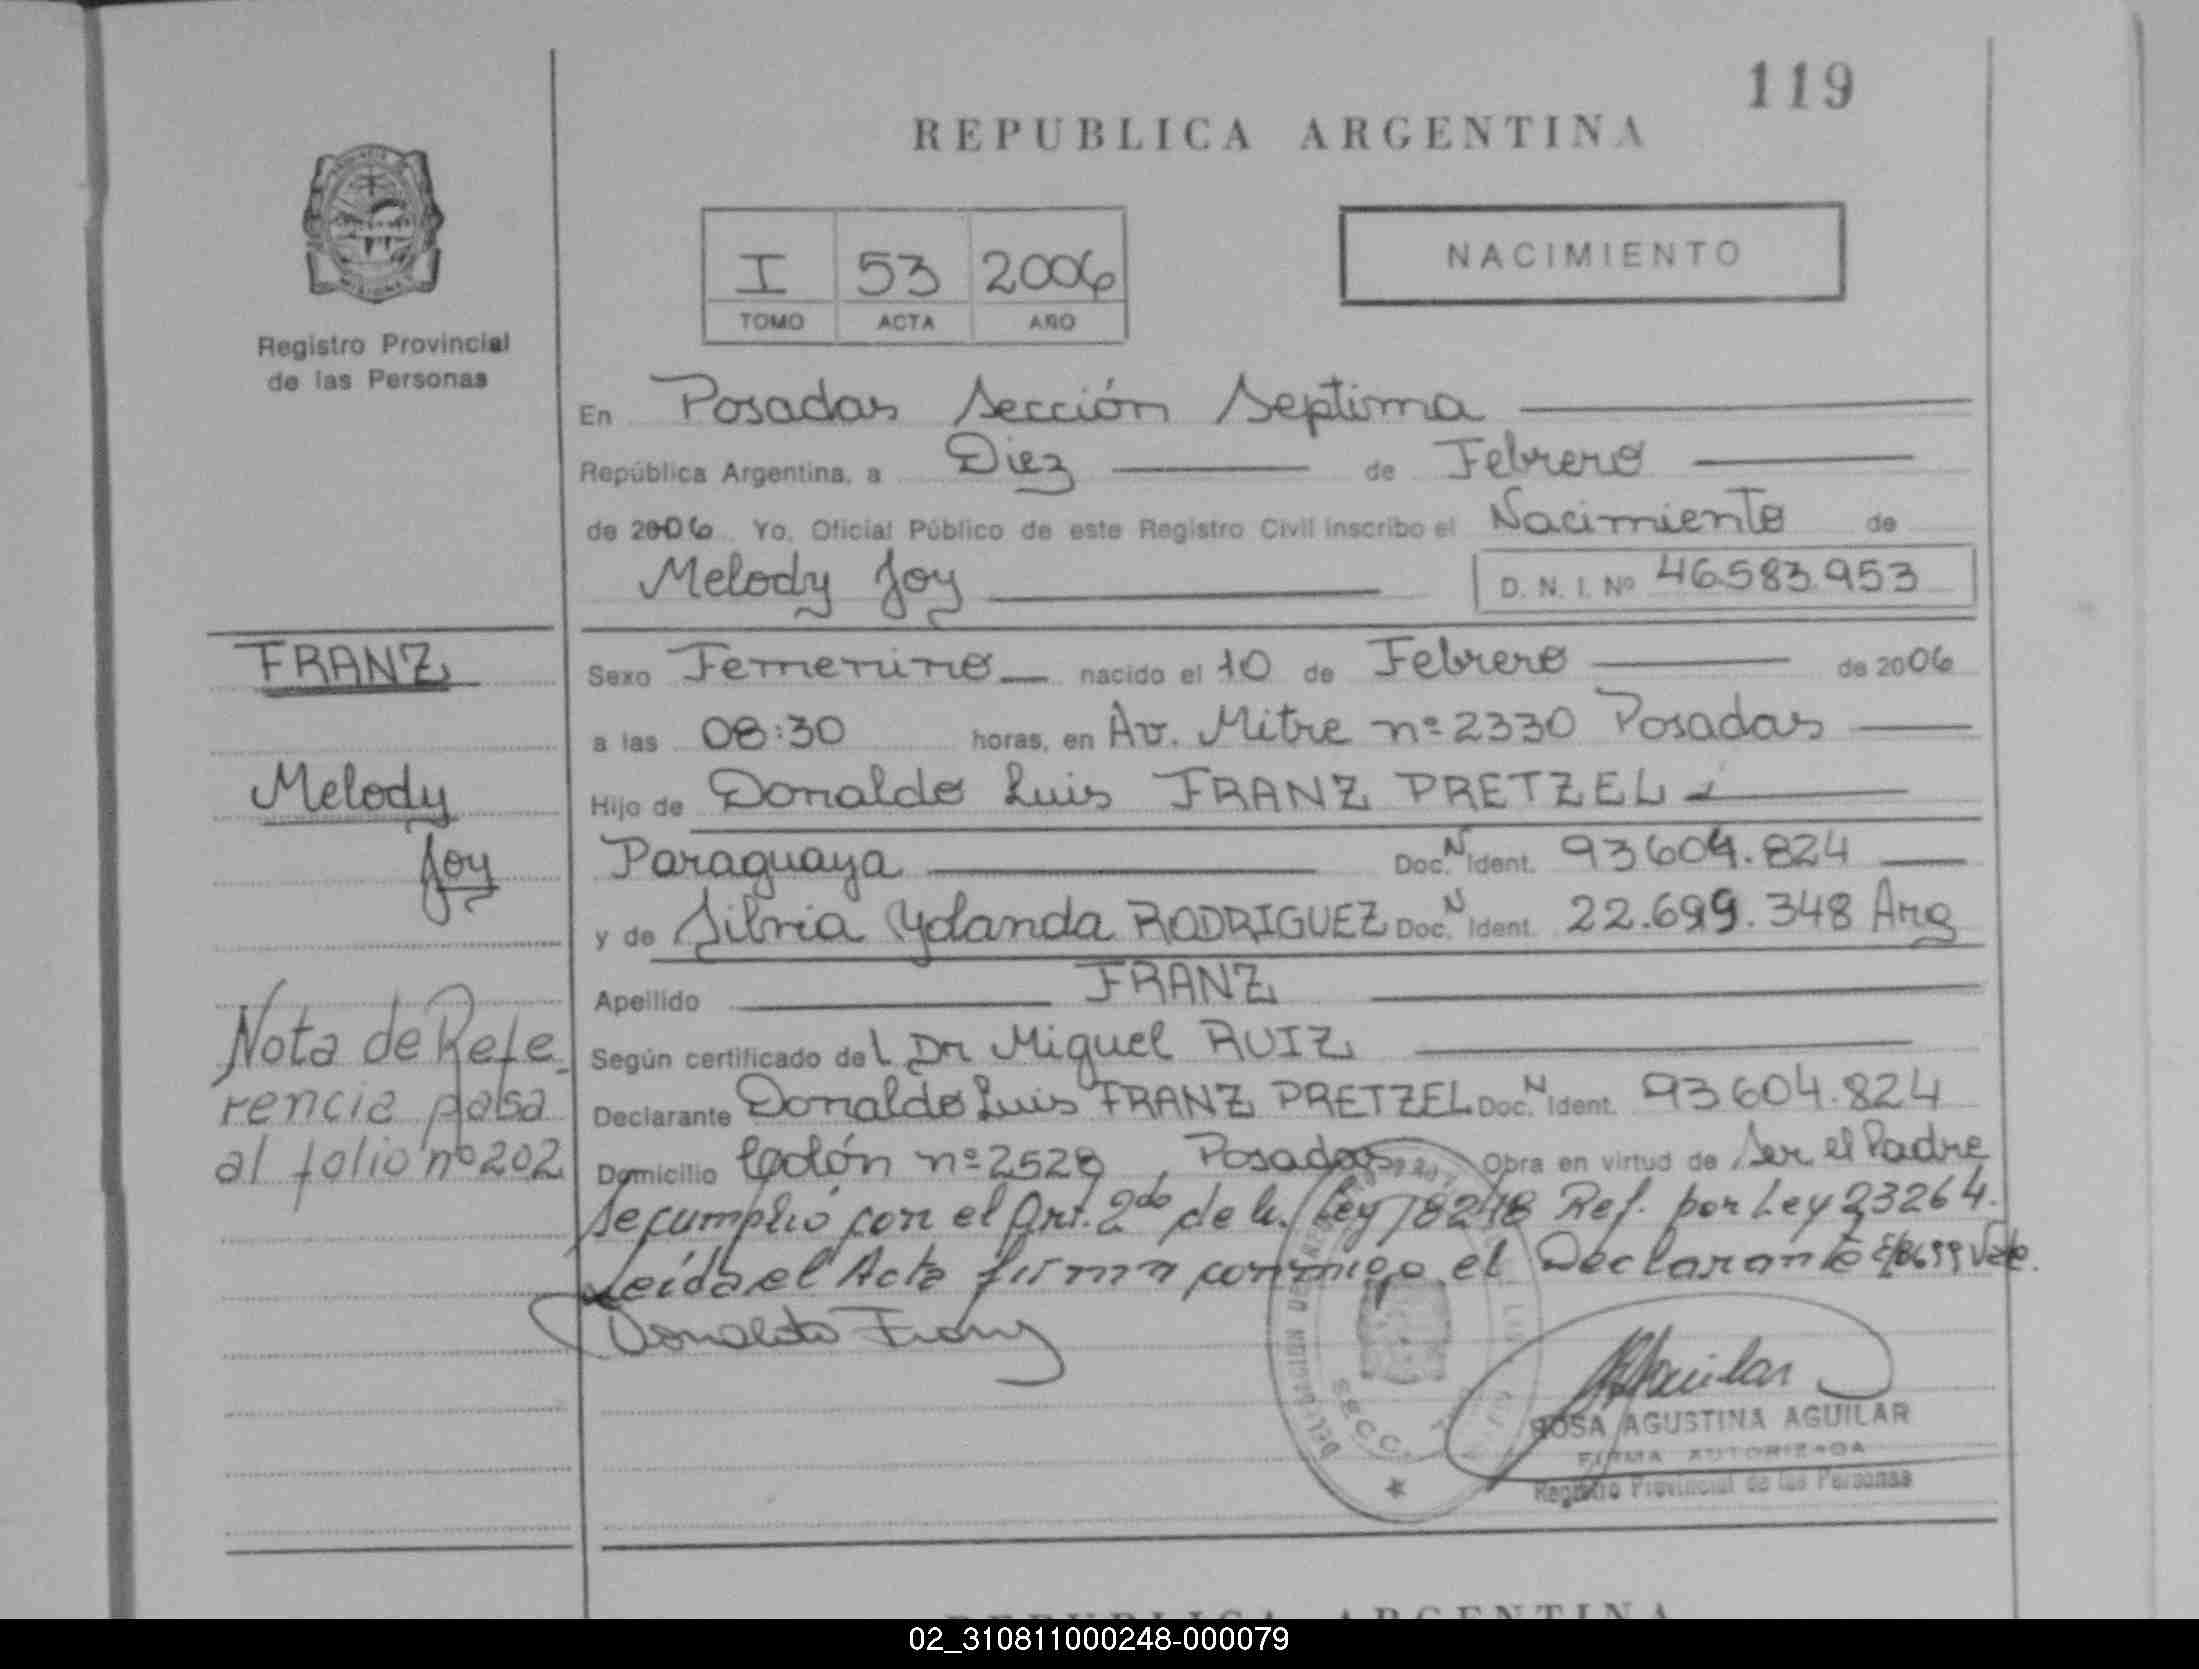 119
REPUBLICA ARGENTINA
I 53 2006
TOMO ACTA AÑO
NACIMIENTO
Registro Provincial
de las Personas
En Posadas Sección Septima
República Argentina, a Diez de Febrero
de 2006 Yo, Oficial Público de este Registro Civil inscribo el Nacimiento de
Melody Joy D. N. I. Nº 46.583.953
FRANZ
Melody
Joy
Nota de Refe_
rencia pasa
al folio nº 202
Sexo Femenino nacido el 10 de Febrero de 2006
a las 08:30 horas, en Av. Mitre nº 2330 Posadas
Hijo de Donaldo Luis FRANZ PRETZEL
Paraguaya Doc. N Ident. 93604.824
y de Silvia Yolanda RODRIGUEZ Doc. N Ident. 22.699.348 Arg
Apellido FRANZ
Según certificado del Dr Miguel RUIZ
Declarante Donaldo Luis FRANZ PRETZEL Doc. N Ident. 93604.824
Domicilio Colón nº 2528, Posadas Obra en virtud de Ser el Padre
Se cumplió con el Art. 2do de la Ley 18248 Ref. por Ley 23264.
Leída el Acta firma conmigo el Declarante E/8699 Vale.
Donaldo Franz
Aguilar
ROSA AGUSTINA AGUILAR
FIRMA AUTORIZADA
Registro Provincial de las Personas
SECC.
REPUBLICA ARGENTINA
02_310811000248-000079